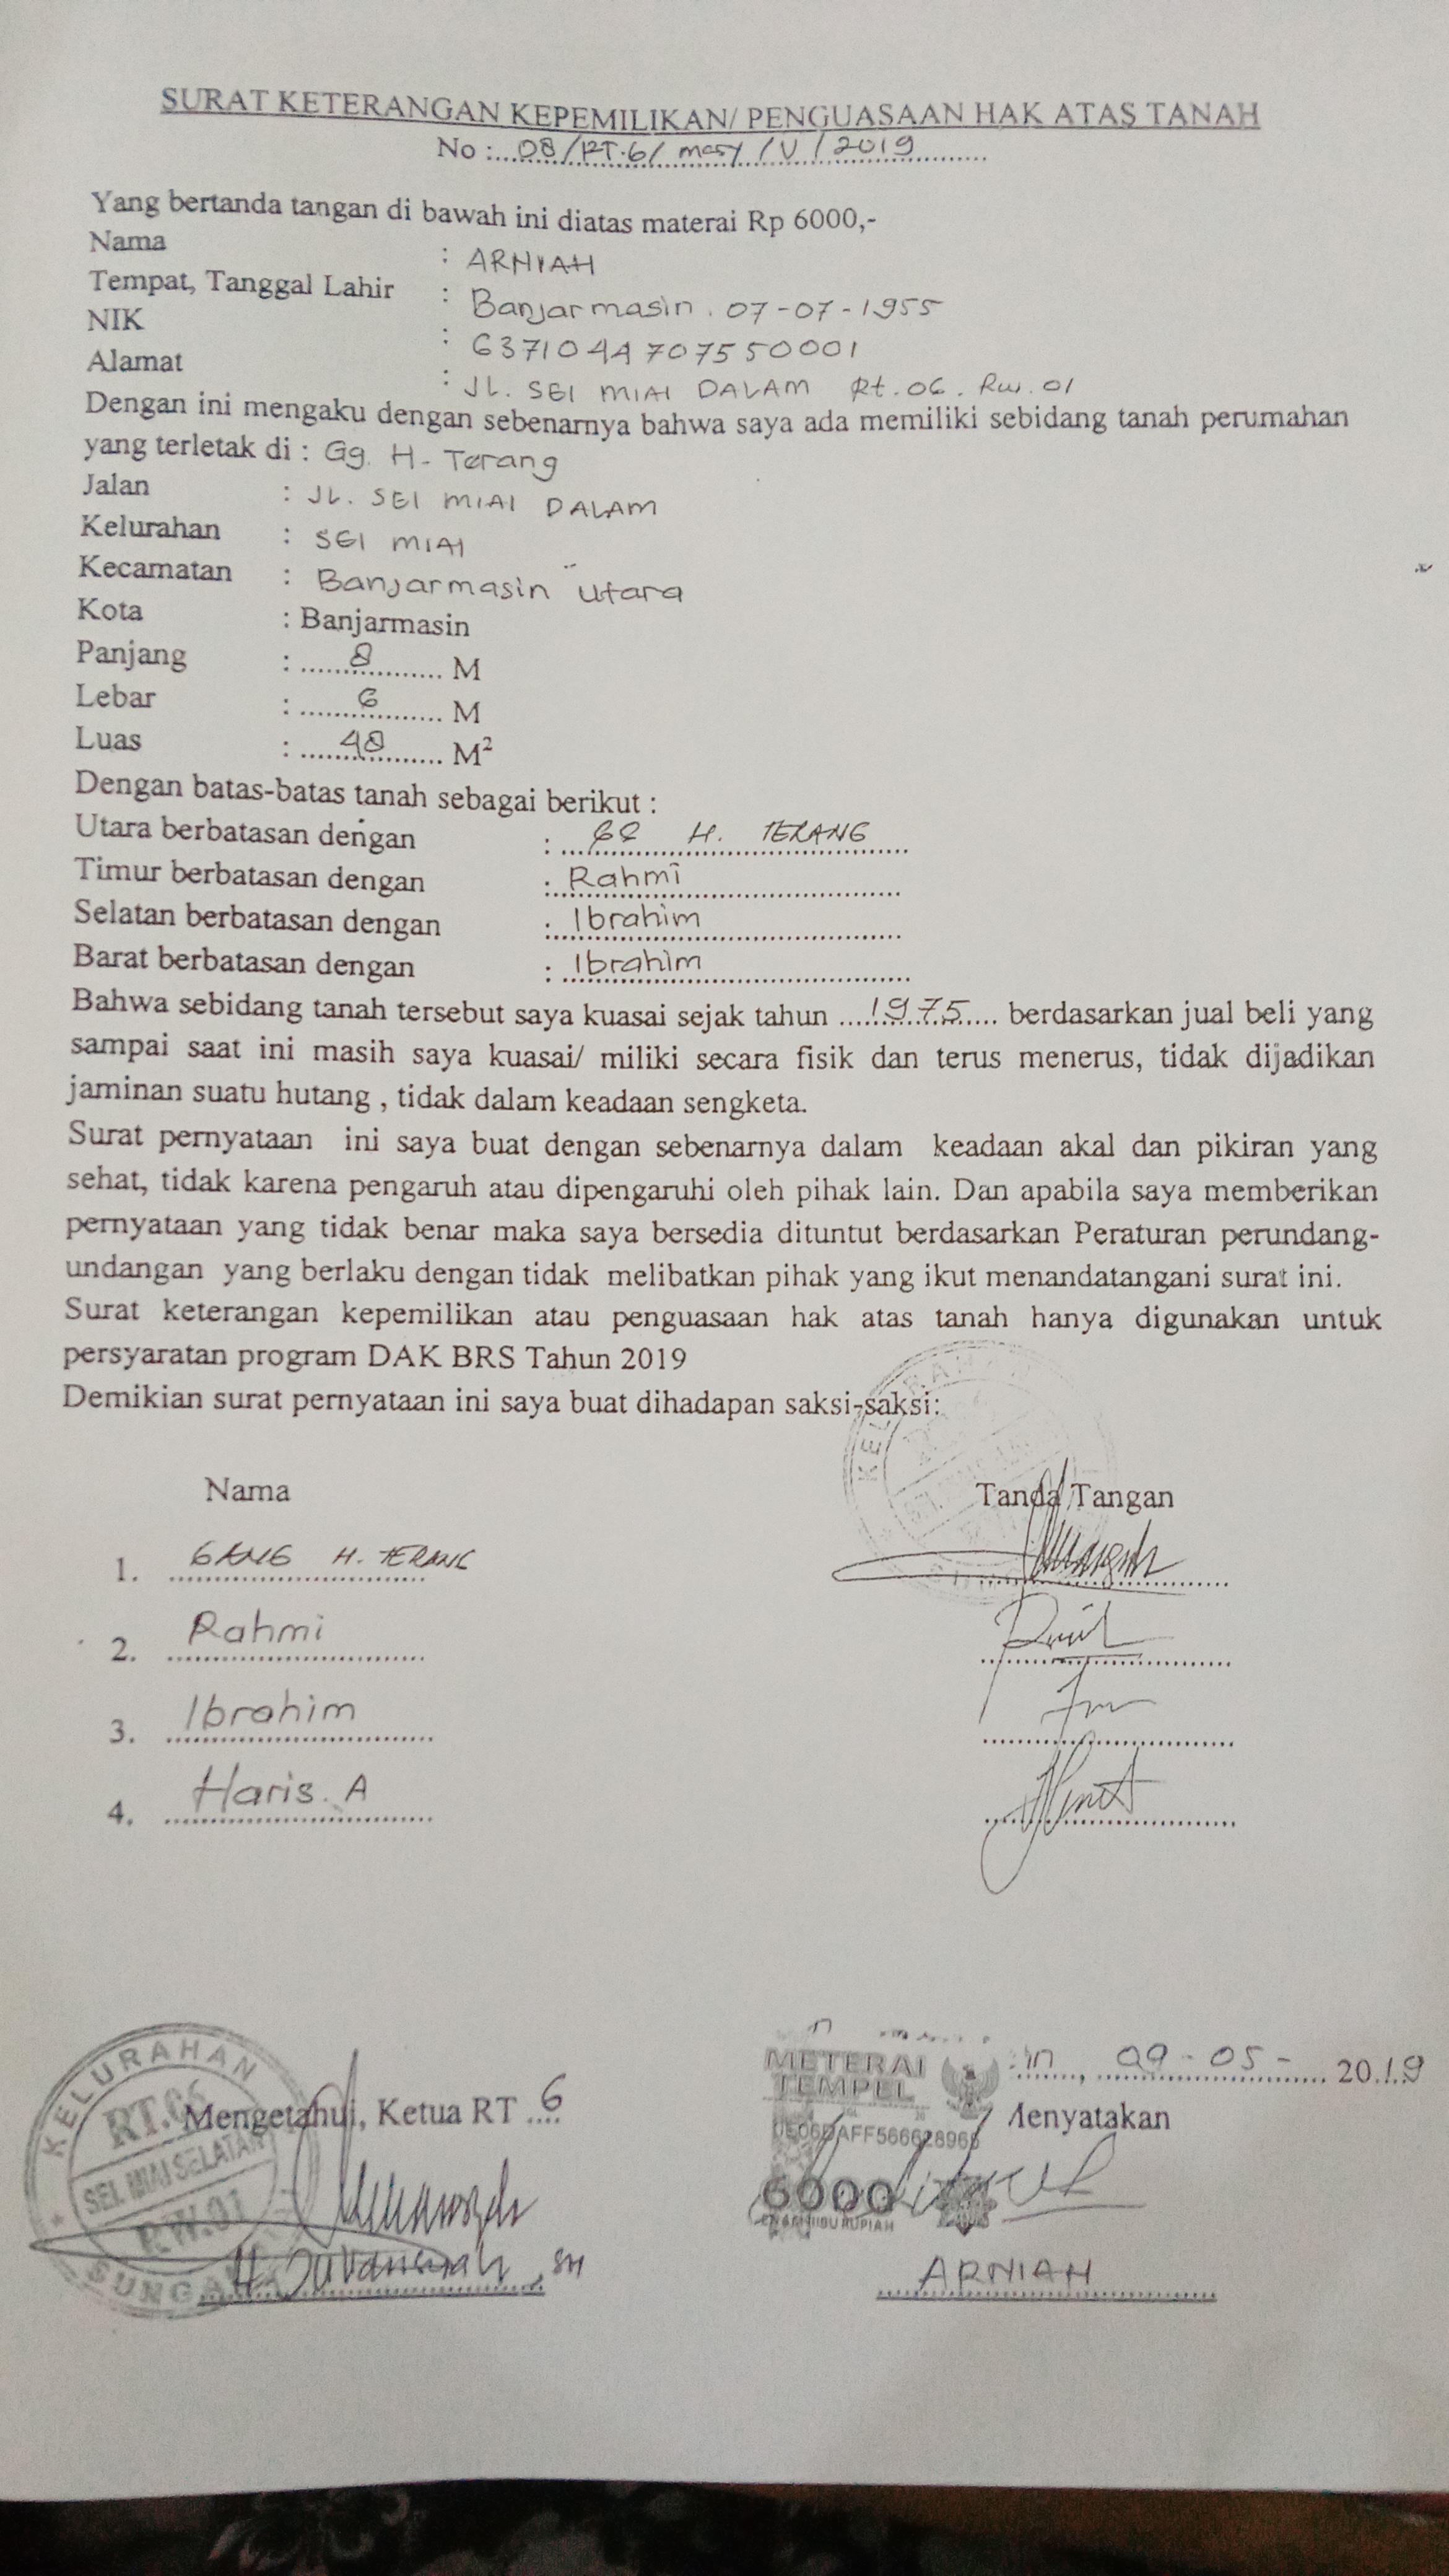 SURAT KETERANGAN KEPEMILIKAN/ PENGUASAAN HAK ATAS TANAH
No : 08/RT.6/ masy /V/2019
Yang bertanda tangan di bawah ini diatas materai Rp 6000,-
Nama : ARNIAH
Tempat, Tanggal Lahir : Banjarmasin. 07-07-1955
NIK : 6371044707550001
Alamat : JL. SEI MIAI DALAM Rt.06. Rw.01
Dengan ini mengaku dengan sebenarnya bahwa saya ada memiliki sebidang tanah perumahan
yang terletak di : Gg. H. Terang
Jalan : JL. SEI MIAI DALAM
Kelurahan : SEI MIAI
Kecamatan : Banjarmasin Utara
Kota : Banjarmasin
Panjang : 8 M
Lebar : 6 M
Luas : 48 M²
Dengan batas-batas tanah sebagai berikut :
Utara berbatasan dengan : GG H. TERANG
Timur berbatasan dengan : Rahmi
Selatan berbatasan dengan : Ibrahim
Barat berbatasan dengan : Ibrahim
Bahwa sebidang tanah tersebut saya kuasai sejak tahun ....1975.... berdasarkan jual beli yang
sampai saat ini masih saya kuasai/ miliki secara fisik dan terus menerus, tidak dijadikan
jaminan suatu hutang , tidak dalam keadaan sengketa.
Surat pernyataan ini saya buat dengan sebenarnya dalam keadaan akal dan pikiran yang
sehat, tidak karena pengaruh atau dipengaruhi oleh pihak lain. Dan apabila saya memberikan
pernyataan yang tidak benar maka saya bersedia dituntut berdasarkan Peraturan perundang-
undangan yang berlaku dengan tidak melibatkan pihak yang ikut menandatangani surat ini.
Surat keterangan kepemilikan atau penguasaan hak atas tanah hanya digunakan untuk
persyaratan program DAK BRS Tahun 2019
Demikian surat pernyataan ini saya buat dihadapan saksi-saksi:
Nama Tanda Tangan
1. GANG H. TERANG
2. Rahmi
3. Ibrahim
4. Haris. A
09-05-2019
Mengetahui, Ketua RT 6
Menyatakan
KELURAHAN
RT.06
SEI. MIAI SELATAN
RW.01
METERAI
TEMPEL
6000
ENAM RIBU RUPIAH
SH
ARNIAH